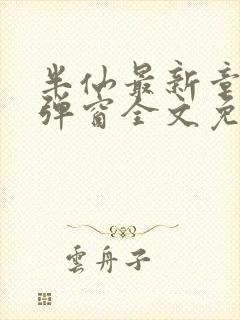 半仙最新章
弹窗全文免
雲舟子